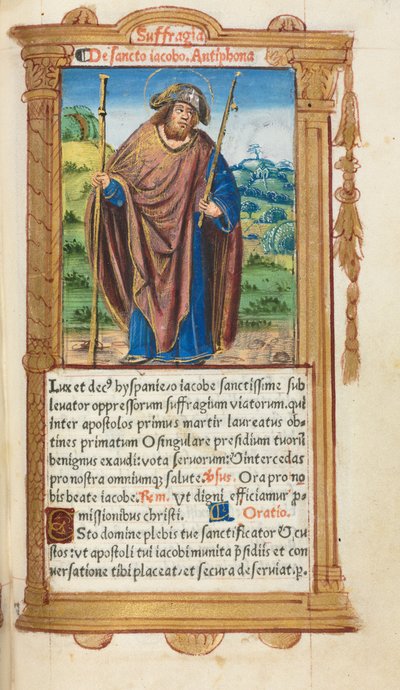 Suffragia
De sancto iacobo. Antiphona
Lux et decꝰ hyspanie/o iacobe sanctissime sub
leuator oppressorum suffragium viatorum. qui
inter apostolos primus martir laureatus ob-
tines primatum O singulare presidium tuorũ
benignus exaudi: vota seruorum: & intercedas
pro nostra omniumqꝫ salute. Ꝟsus. Ora pro no
bis beate iacobe. ℞m. Vt digni efficiamur ꝓ-
missionibus christi. Oratio.
ESto domine plebis tue sanctificator & cu
stos: vt apostoli tui iacobi munita p̃sidiis et con
uersatione tibi placeat/et secura deseruiat. ꝑ.